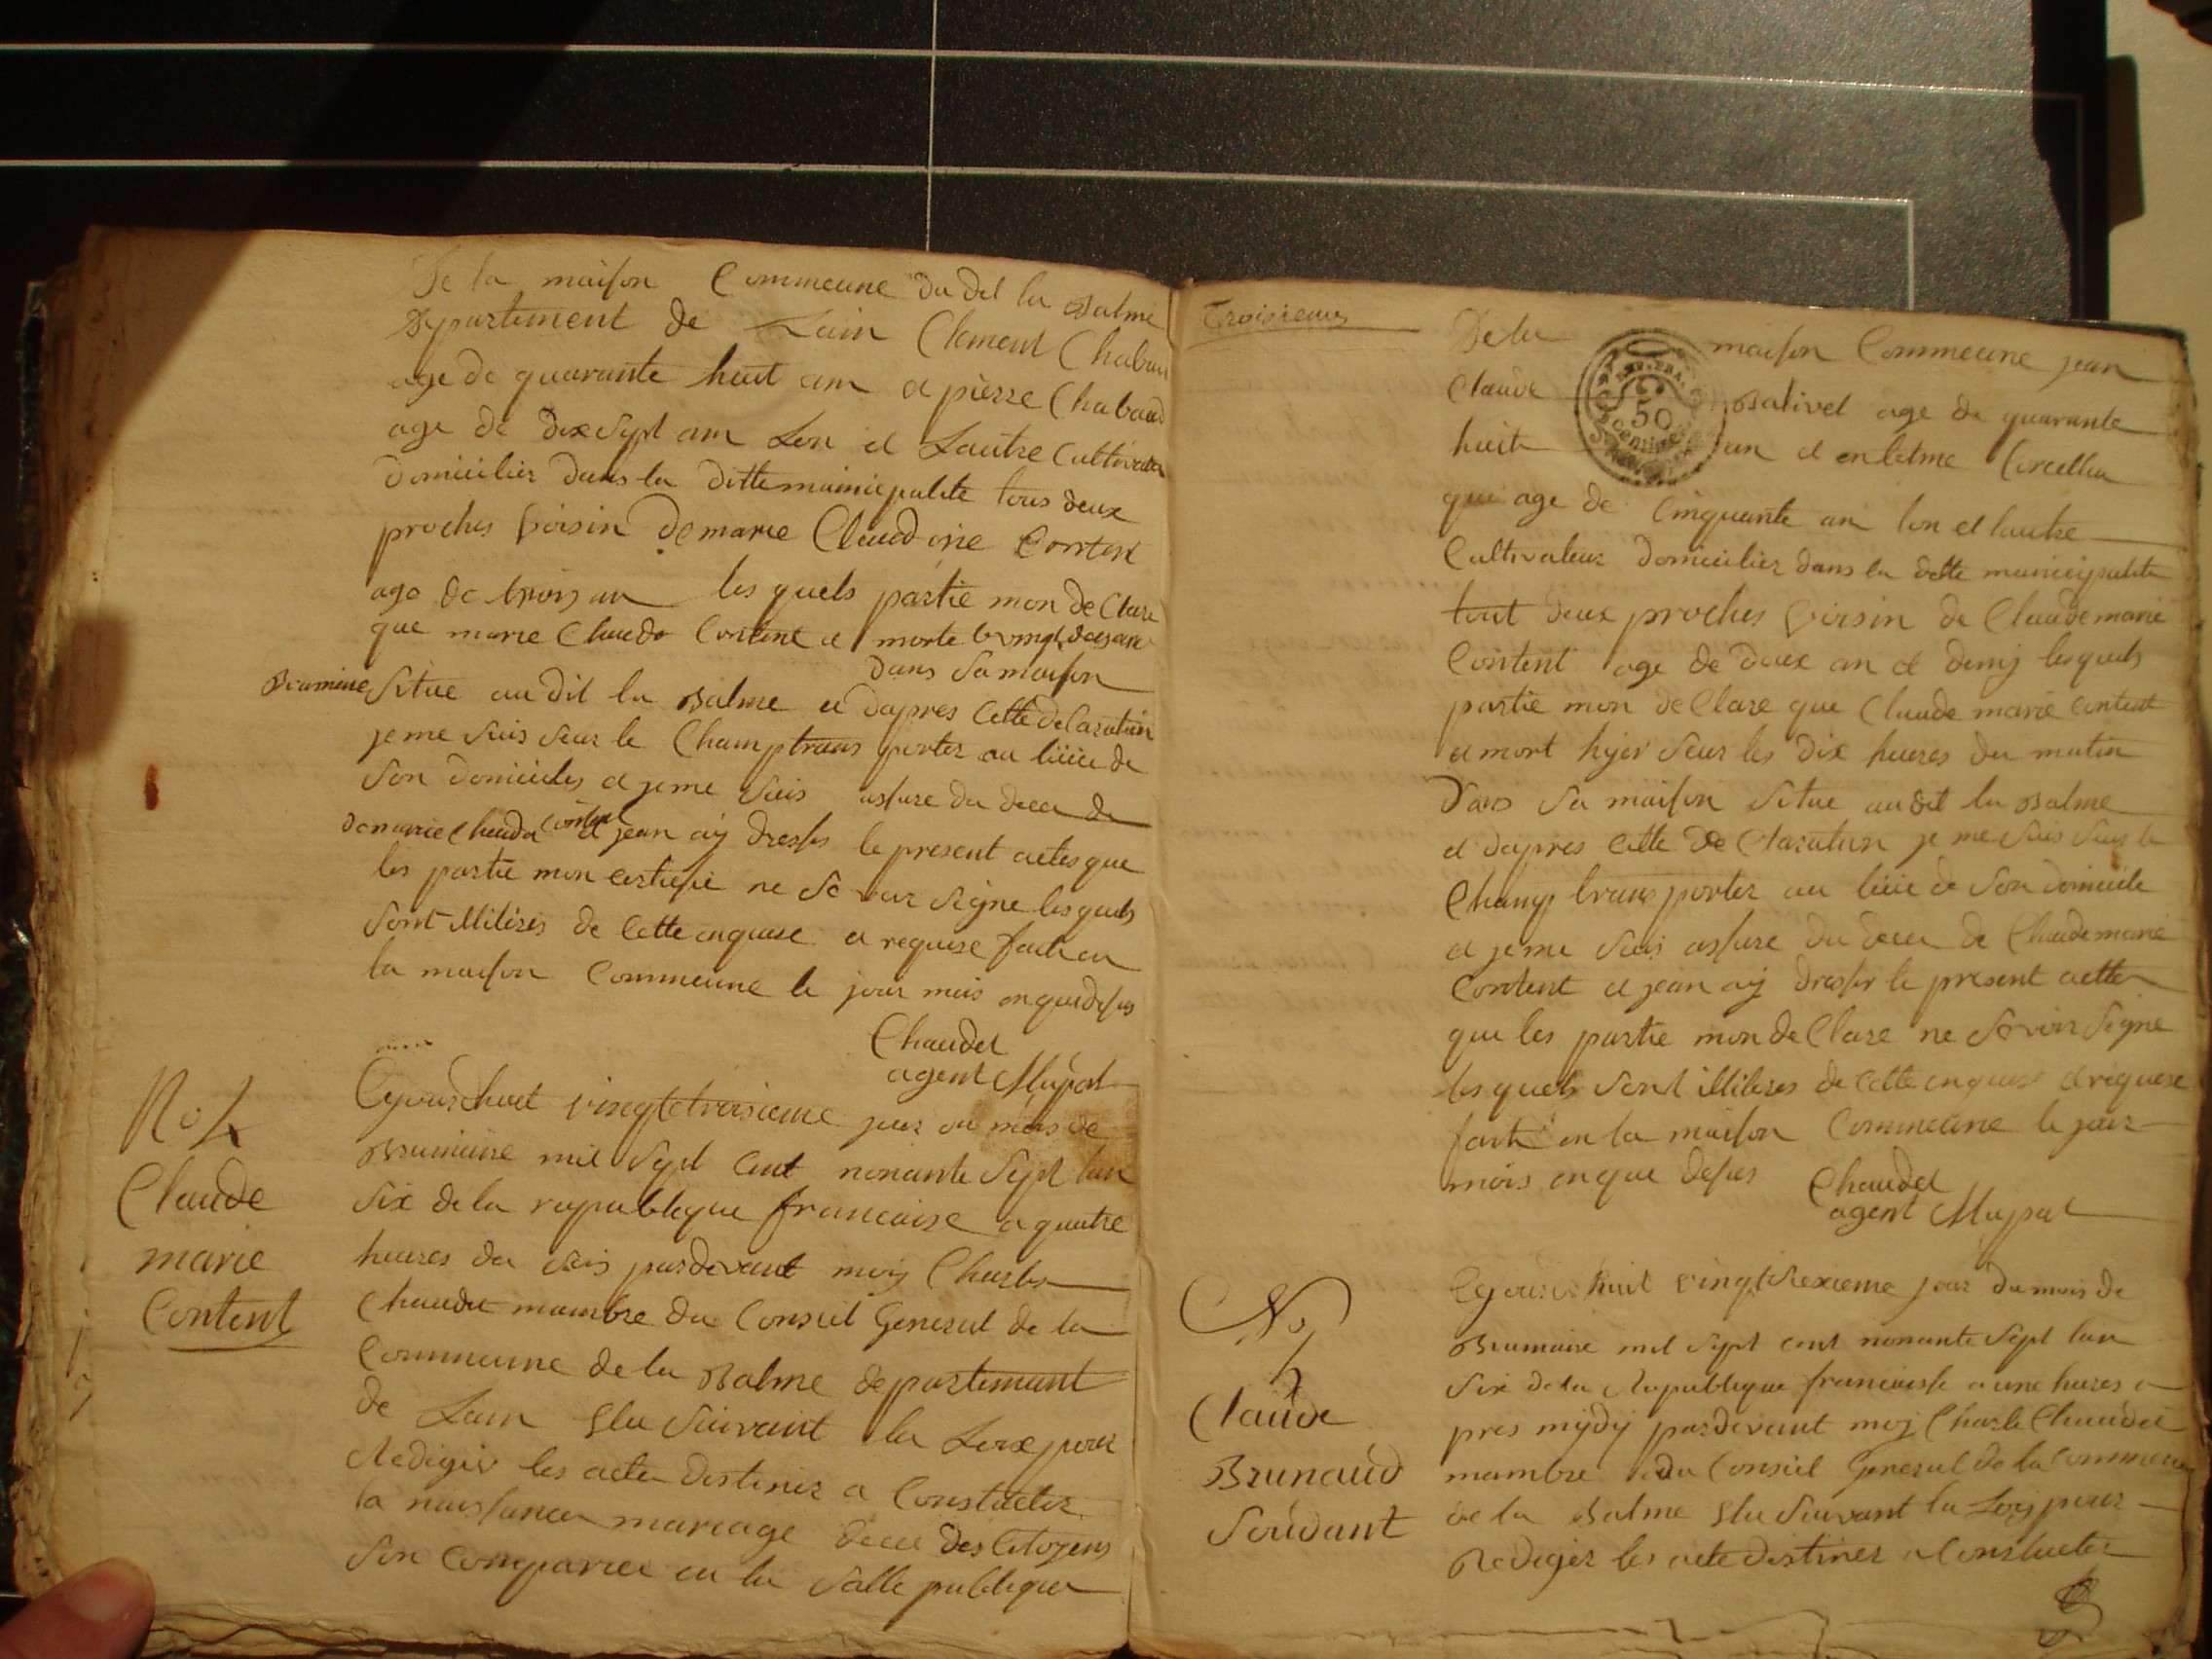 De la maison Commeune du dit la Balme
Departement de Lain Clement Chabau
age de quarante huit ann et pierre Chabaud
age de dixsept ann Lon et Lautre Cultivateu
domicilier dans la ditte municipalite tous deux
proches voisin de marie Claudine Content
age de trois an les quels partie mon de Clare
que marie Claude Content et morte le vingt
dans sa maison
Brumaire situe au dit la Balme et dapres Cette de Claration
je me suis seur le Champ trans porter au lieu de
son domicile et je me suis assure du dece de
de marie Claude Content et jean aÿ dresser le present actes que
les partie mon certifie ne se voir signe les quels
sont illiteres de Cette enquise et requise fait en
la maison Commeune le jour mois en que desus
Chaudet
agent Mupal
No 4
Claude
marie
Content
Cejourdhuit vingtetroisieme jour du mois de
Brumaire mil sept Cent nonante sept lan
six de la republique francaise a quatre
heures du soir pardevant moy Charles
Chaudet mambre du Conseil General de la
Commeune de la Balme departemant
de Lain Elu suivant la Loix pour
Rediger les acte destiner a Constaeter
la naissance mareage dece des Citoyens
son Comparue en la salle publique
Troisieme
De la maison Commeune jean
Claude Balivet age de quarante
REP. FRA.
50
centimes
huit an et enletme Corcellu
que age de Cinquante an lon et lautre
Cultivateur domicilier dans la dette municipalite
tout deux proches voisin de Claude marie
Content age de deux an et demÿ lesquels
partie mon de Clare que Claude marie Content
et mort hyer seur les dix heures du matin
dans sa maison situe audit la Balme
et dapres Cette de Claration je me suis sur le
Champ trans porter au lieu de son domicile
et je me suis assure du dece de Claude marie
Content et jean aÿ dresser le present actte
que les partie mon de Clare ne se voir signe
les quels sont illiteres de Cette enquise et requise
fait en la maison Commeune le jour
mois en que desus
Chaudet
agent Mupal
No 5
Claude
Brunaud
Soudant
Cejourdhuit vingtsixieme jour du mois de
Brumaire mil sept cent nonante sept lan
six de la Republique francaisse a une heures a
pres mÿdÿ pardevant moy Charle Chaudet
mambre du Conseil General de la Commeune
de la Balme Elu suivant la Loy pour
Rediger les acte destiner a Constaeter